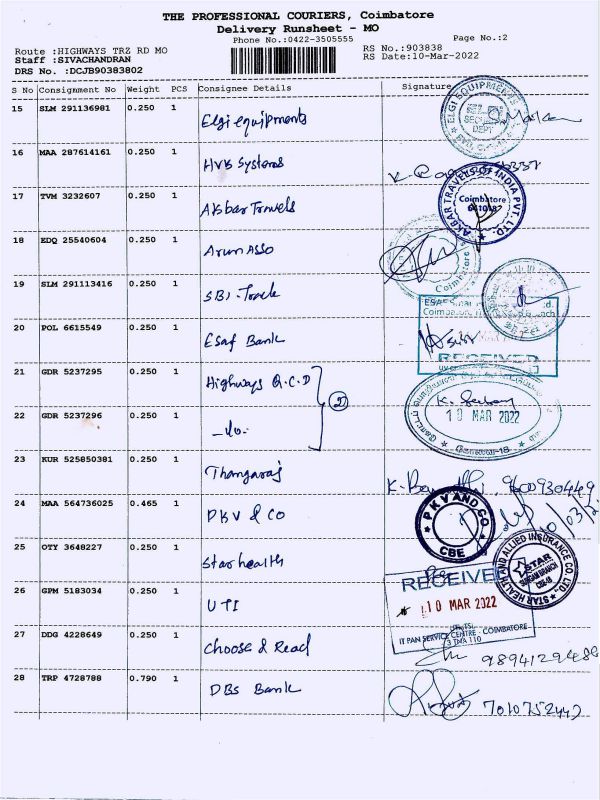 THE PROFESSIONAL COURIERS, Coimbatore
Delivery Runsheet - MO
Phone No.:0422-3505555
Page No.:2
Route :HIGHWAYS TRZ RD MO
Staff :SIVACHANDRAN
DRS No. :DCJB90383802
RS No.:903838
RS Date:10-Mar-2022
S No Consignment No Weight PCS Consignee Details Signature
15 SLM 291136981 0.250 1 Elgi equipments
ELGI EQUIPMENTS
SECURITY
DEPT
16 MAA 287614161 0.250 1 HVB Systems
17 TVM 3232607 0.250 1 Akbar Travels
AKBAR TRAVELS OF INDIA PVT. LTD.
Coimbatore
641018
18 EDQ 25540604 0.250 1 Arun ASSO
Coimbatore
19 SLM 291113416 0.250 1 SBI - Track
20 POL 6615549 0.250 1 Esaf Bank
RECEIVED
21 GDR 5237295 0.250 1 Highways Q.C.D
2
22 GDR 5237296 0.250 1 -do-
10 MAR 2022
கோவை-18
23 KUR 525850381 0.250 1 Thangaraj
9600930449
24 MAA 564736025 0.465 1 PKV & CO
PKV AND CO
CBE
25 OTY 3648227 0.250 1 Star health
STAR HEALTH AND ALLIED INSURANCE CO. LTD.
STAR
26 GPM 5183034 0.250 1 UTI
RECEIVED
10 MAR 2022
IT PAN SERVICE CENTRE - COIMBATORE
27 DDG 4228649 0.250 1 Choose & Read
9894129488
28 TRP 4728788 0.790 1 DBS Bank
7010752442